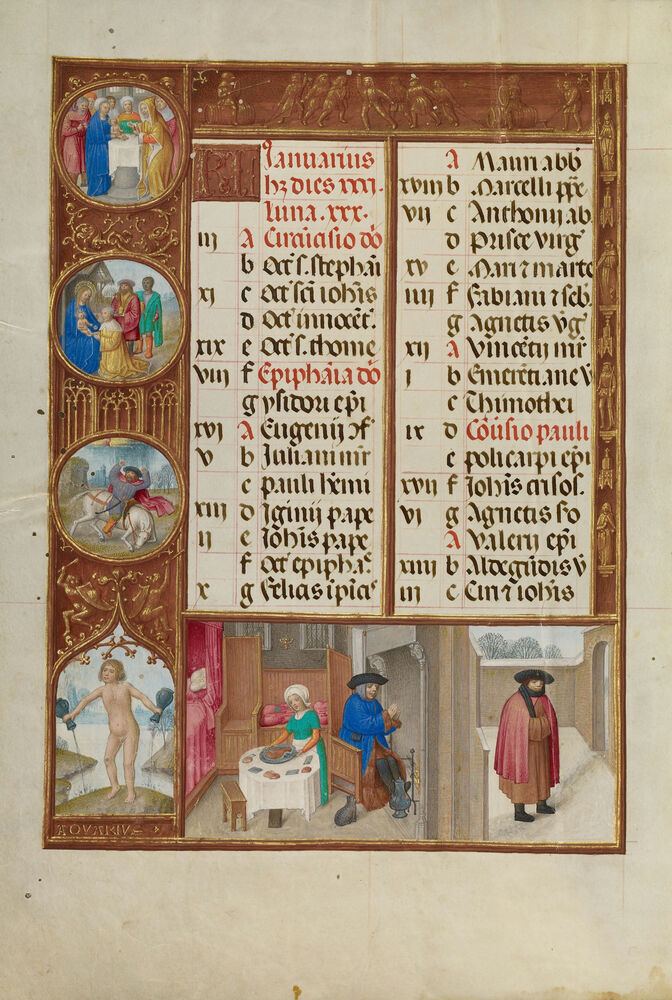 KL Ianuarius
hz dies xxxi.
luna. xxx.
iij A Circūcisio dō
b Oct᷒ s. stephāi
xi c Oct᷒ scī iohīs
d Oct᷒ innocēt.
xix e Oct᷒ s. thome
viij f Epiphāia dō
g ysidori epī
xvi A Eugenij ꝯf
v b Iuliani mr̄
c pauli h̄emi
xiij d Iginij pape
ij e Iohīs pape
f Oct᷒ epiphāe
x g felicis ī pīcis
A Mauri abb
xviij b Marcelli ppe
vij c Anthonij ab
d Prisce virg
xv e Marij ⁊ marte
iiij f Fabiani ⁊ seb.
g Agnetis vḡ
xij A Vincētij mr̄
i b Emerēciane v
c Thimothei
ix d Cōūsio pauli
e policarpi epī
xvij f Iohīs crisos.
vi g Agnetis s̄o
A Valerij epī
xiiij b Aldegūdis v
iij c Ciri ⁊ iohīs
AQVARIVS